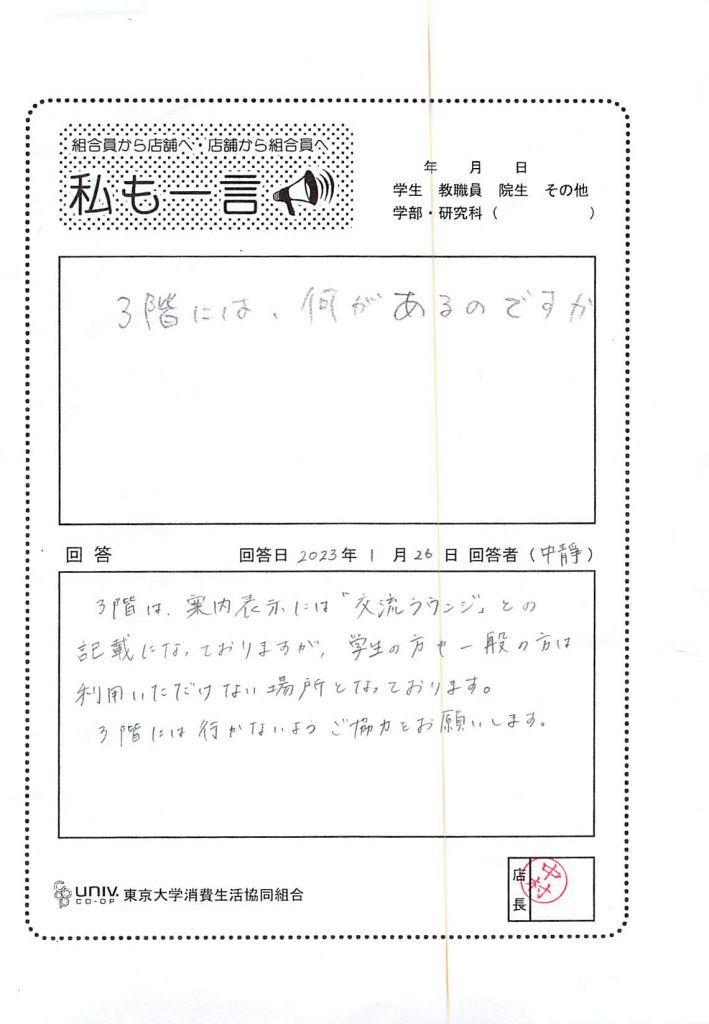 組合員から店舗へ・店舗から組合員へ
私も一言
年 月 日
学生 教職員 院生 その他
学部・研究科( )
3階には、何があるのですか
回答 回答日 2023年 1月 26日 回答者(中静)
3階は、案内表示には「交流ラウンジ」との
記載になっておりますが、学生の方や一般の方は
利用いただけない場所となっております。
3階には行かないようご協力をお願いします。
UNIV. CO-OP 東京大学消費生活協同組合
店長 中村